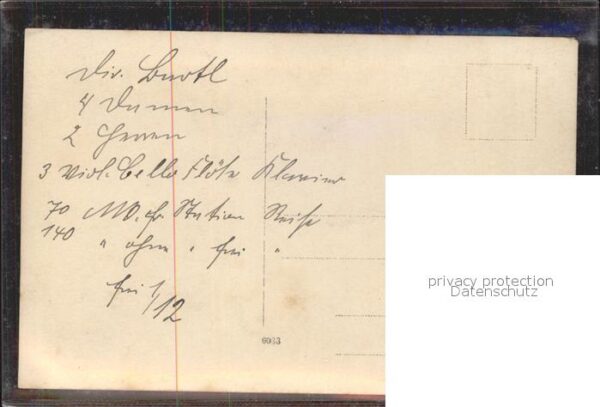 Dir. Bartl
4 Damen
2 Herren
3 Viol. Cello Flöte Klavier
70 M. fr. Station Reise
140 " ohne " frei "
frei 1/12
6033
privacy protection
Datenschutz